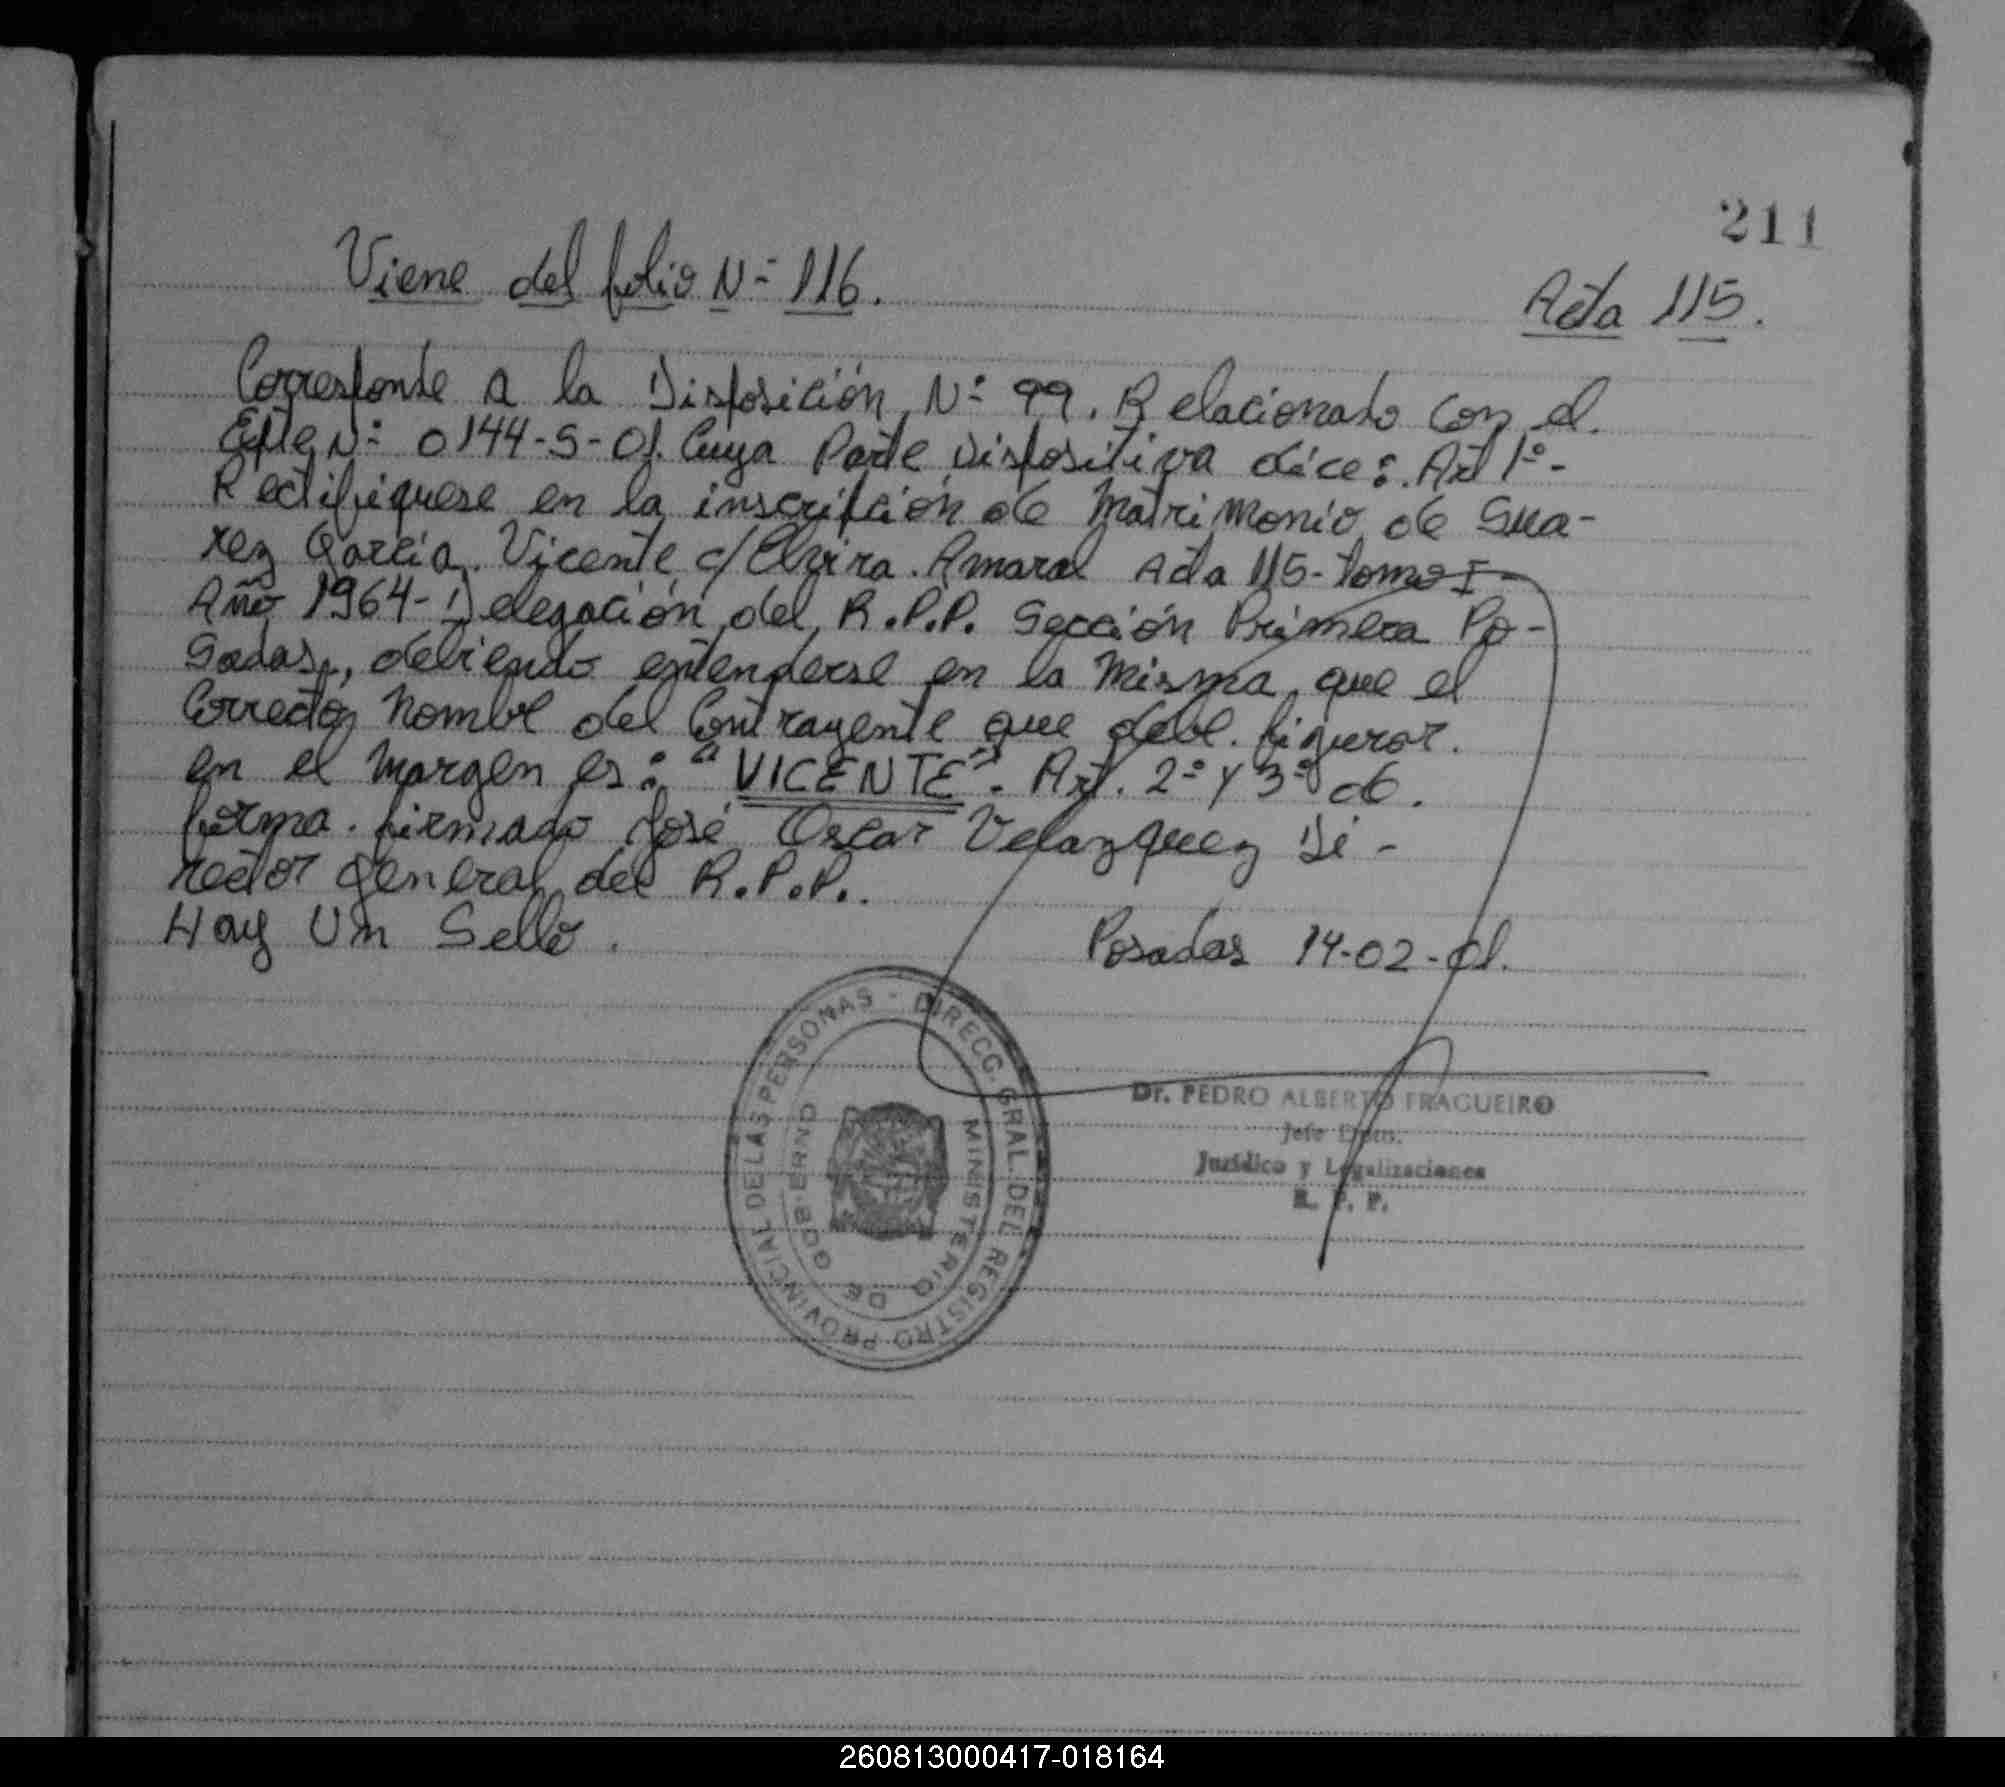 211
Viene del folio N= 116.
Acta 115.
Corresponde a la Disposición, N= 99. Relacionado con el.
Expte N= 0144-S-01. Cuya Parte Dispositiva dice:. Art 1º-
Rectifíquese en la inscripción de Matrimonio de Sua-
rez García. Vicente c/ Elvira. Amaral Acta 115- tomo I-
Año 1964- Delegación del R.P.P. Sección Primera Po-
sadas., debiendo entenderse en la misma que el
Correcto nombre del Contrayente que debe. figurar.
en el margen es: "VICENTE". Art. 2º y 3º de.
forma. firmado José Oscar Velazquez Di-
rector General del R.P.P..
Hay Un Sello.
Posadas 14-02-01.
DIRECC. GRAL. DEL REGISTRO PROVINCIAL DE LAS PERSONAS -
MINISTERIO DE GOBIERNO
Dr. PEDRO ALBERTO FRAGUEIRO
Jefe Dpto.
Jurídico y Legalizaciones
R. P. P.
260813000417-018164